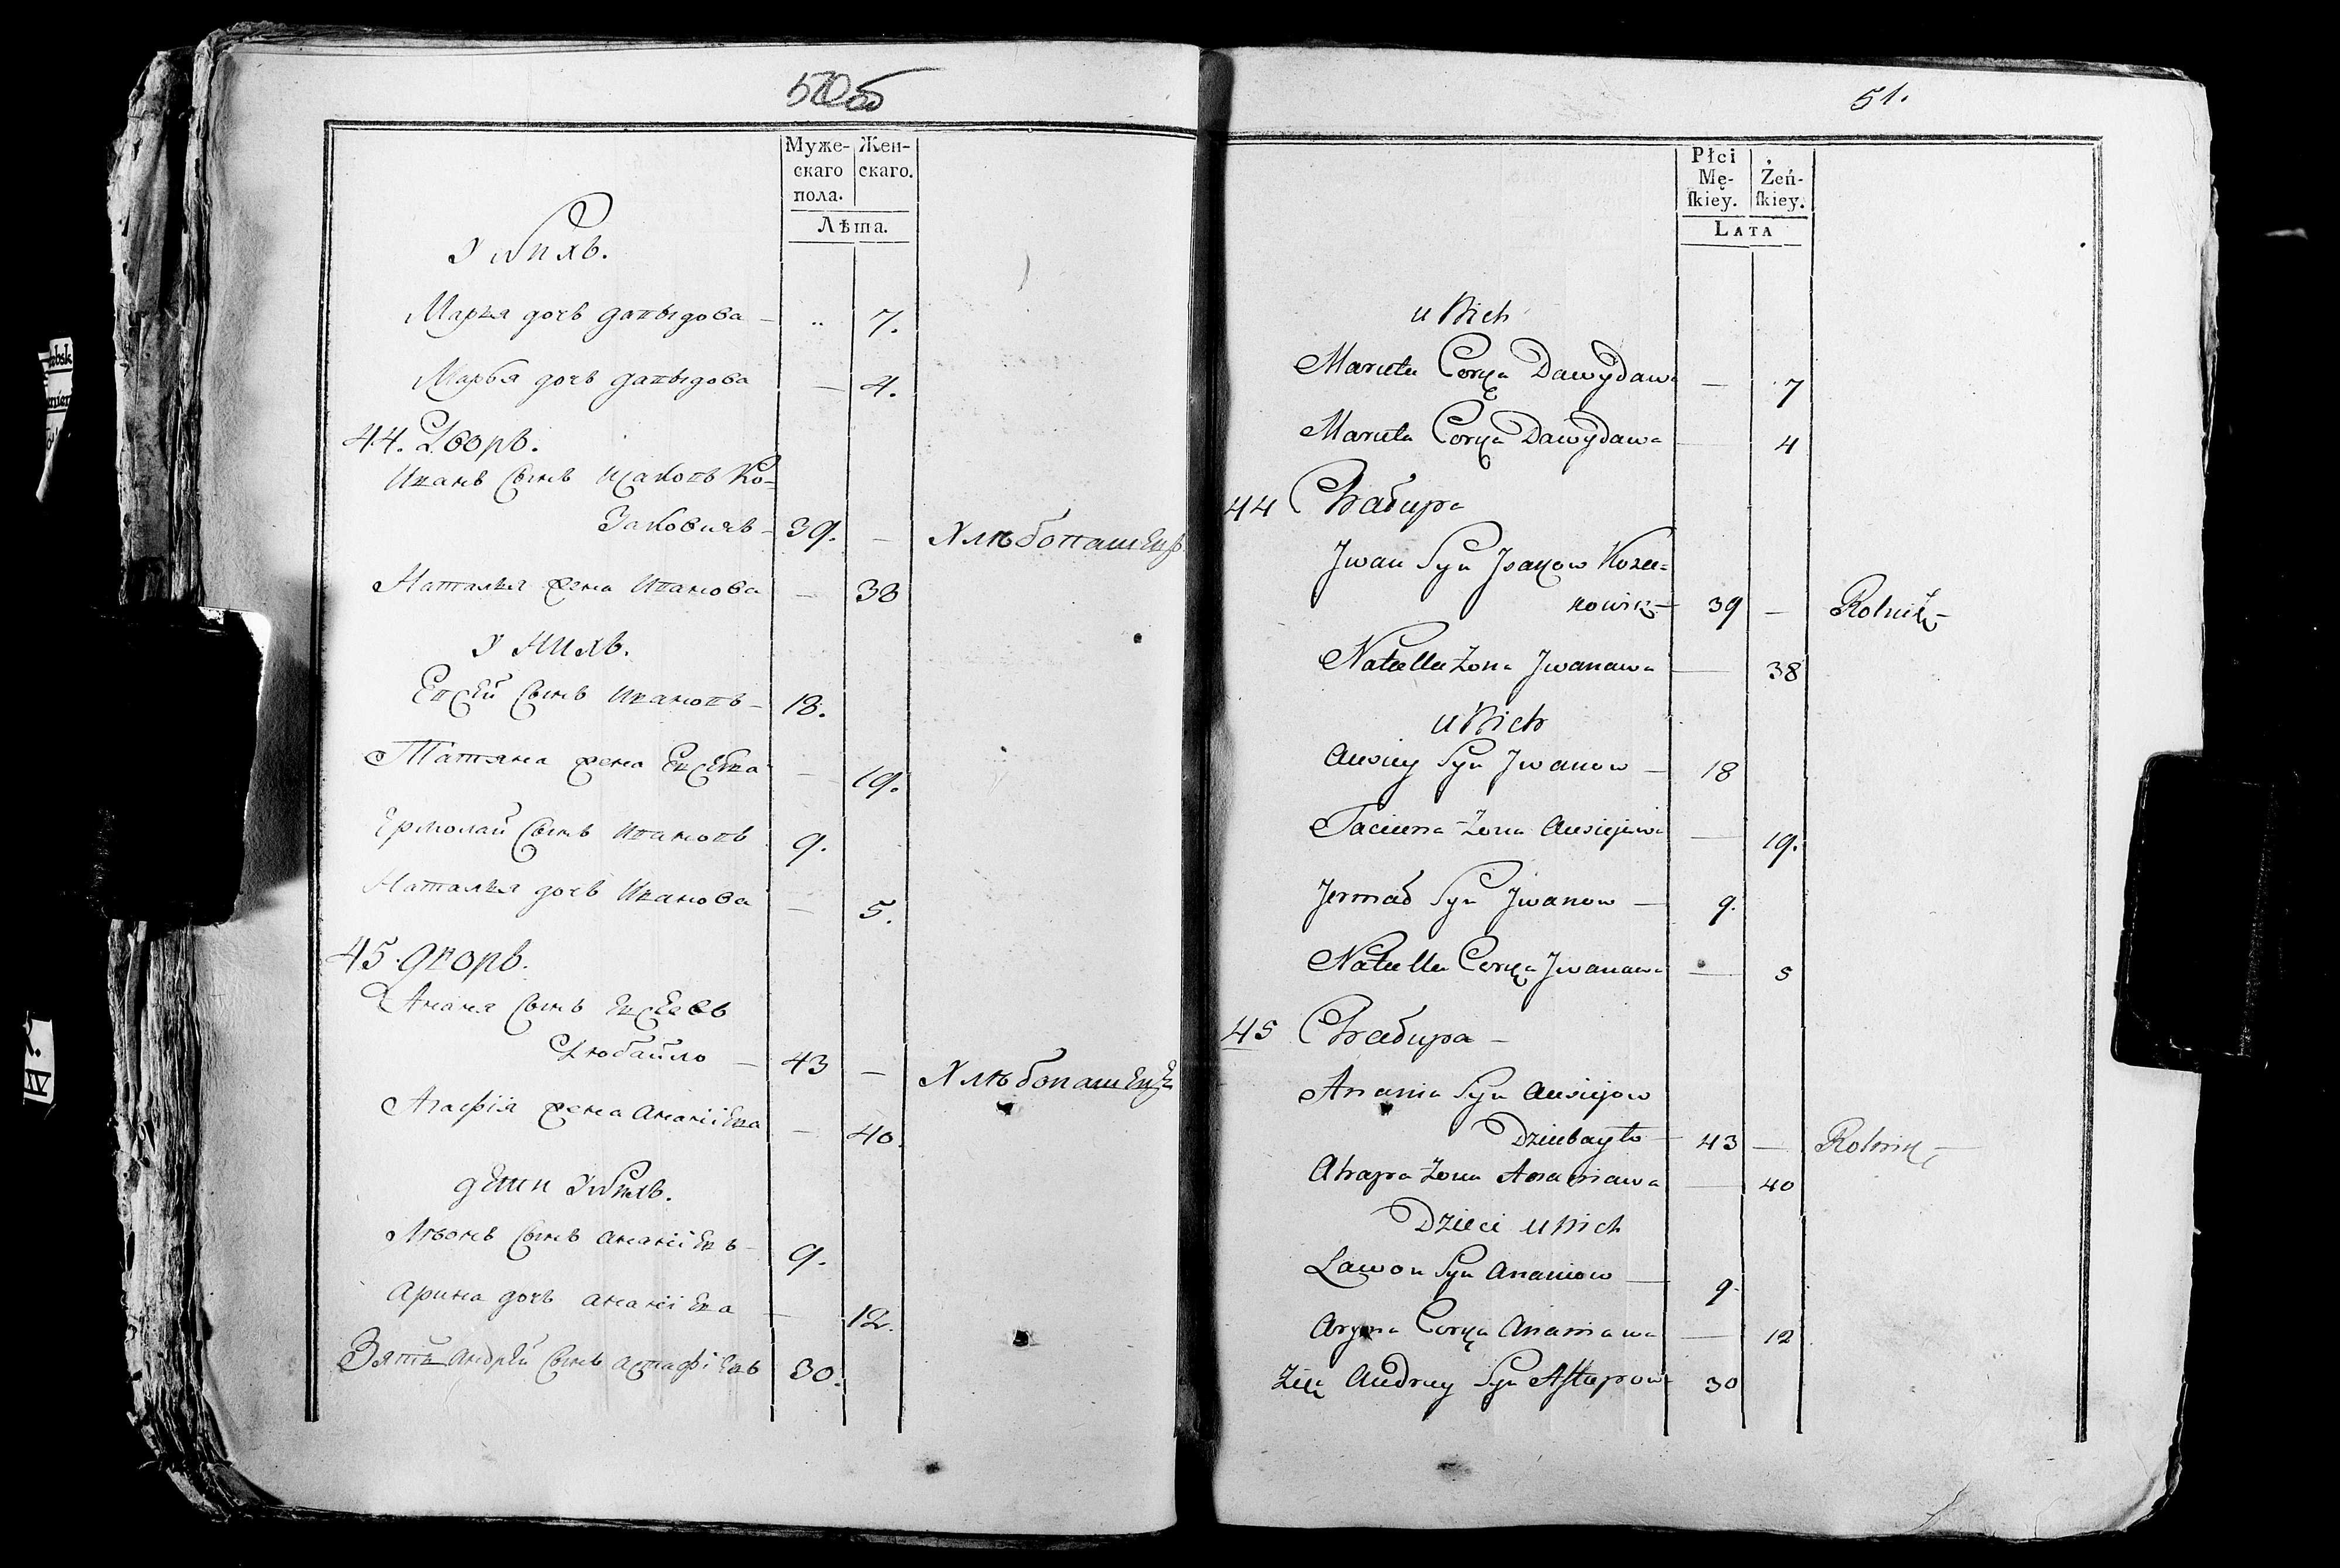 50 об
Муже-
скаго
пола.
Жен-
скаго.
Лѣта.
У Нихъ.
Марья дочь давыдова — .. 7.
Марья дочь давыдова — 4.
44. Дворъ.
Иванъ Сынъ Исаковъ Ко-
заковичь — 39. — Хлѣбопашецъ
Наталья жена Иванова — 38
У нихъ.
Евсей Сынъ Ивановъ — 18.
Татяна жена Евсѣева — 19.
Ермолай Сынъ Ивановъ 9.
Наталья дочь Иванова — 5.
45. дворъ.
Ананя Сынъ Евсеевъ
Дзюбайло — 43 — Хлѣбопашецъ
Агафія жена Ананіева — 40.
дети У Нихъ.
Лявонъ Сынъ ананіевъ — 9.
Арина дочь ананіева — 12.
Зять андрей Сынъ астафіевъ 30.
51.
Płci
Mę-
ſkiey.
Żeń-
ſkiey.
LATA
u Nich
Maruta Corka Dawydawa — 7
Maruta Corka Dawydawa — 4
44 Chałupa
Jwan Syn Jsakow Koza=
kowicz — 39 — Rolnik —
Natalla Żona Jwanawa — 38
u Nich
Ausiey Syn Jwanow — 18
Taciena Żona Ausiejewa — 19.
Jermał Syn Jwanow — 9.
Natalla Corka Jwanawa — 5
45 Chałupa —
Anania Syn Ausiejow
Dziubayło — 43 — Rolnik —
Ahapa Żona Ananiawa — 40
Dzieci u Nich
Lawon Syn Ananiow — 9.
Aryna Corka Ananiawa — 12
Zięć Andrey Syn Aſtapow 30